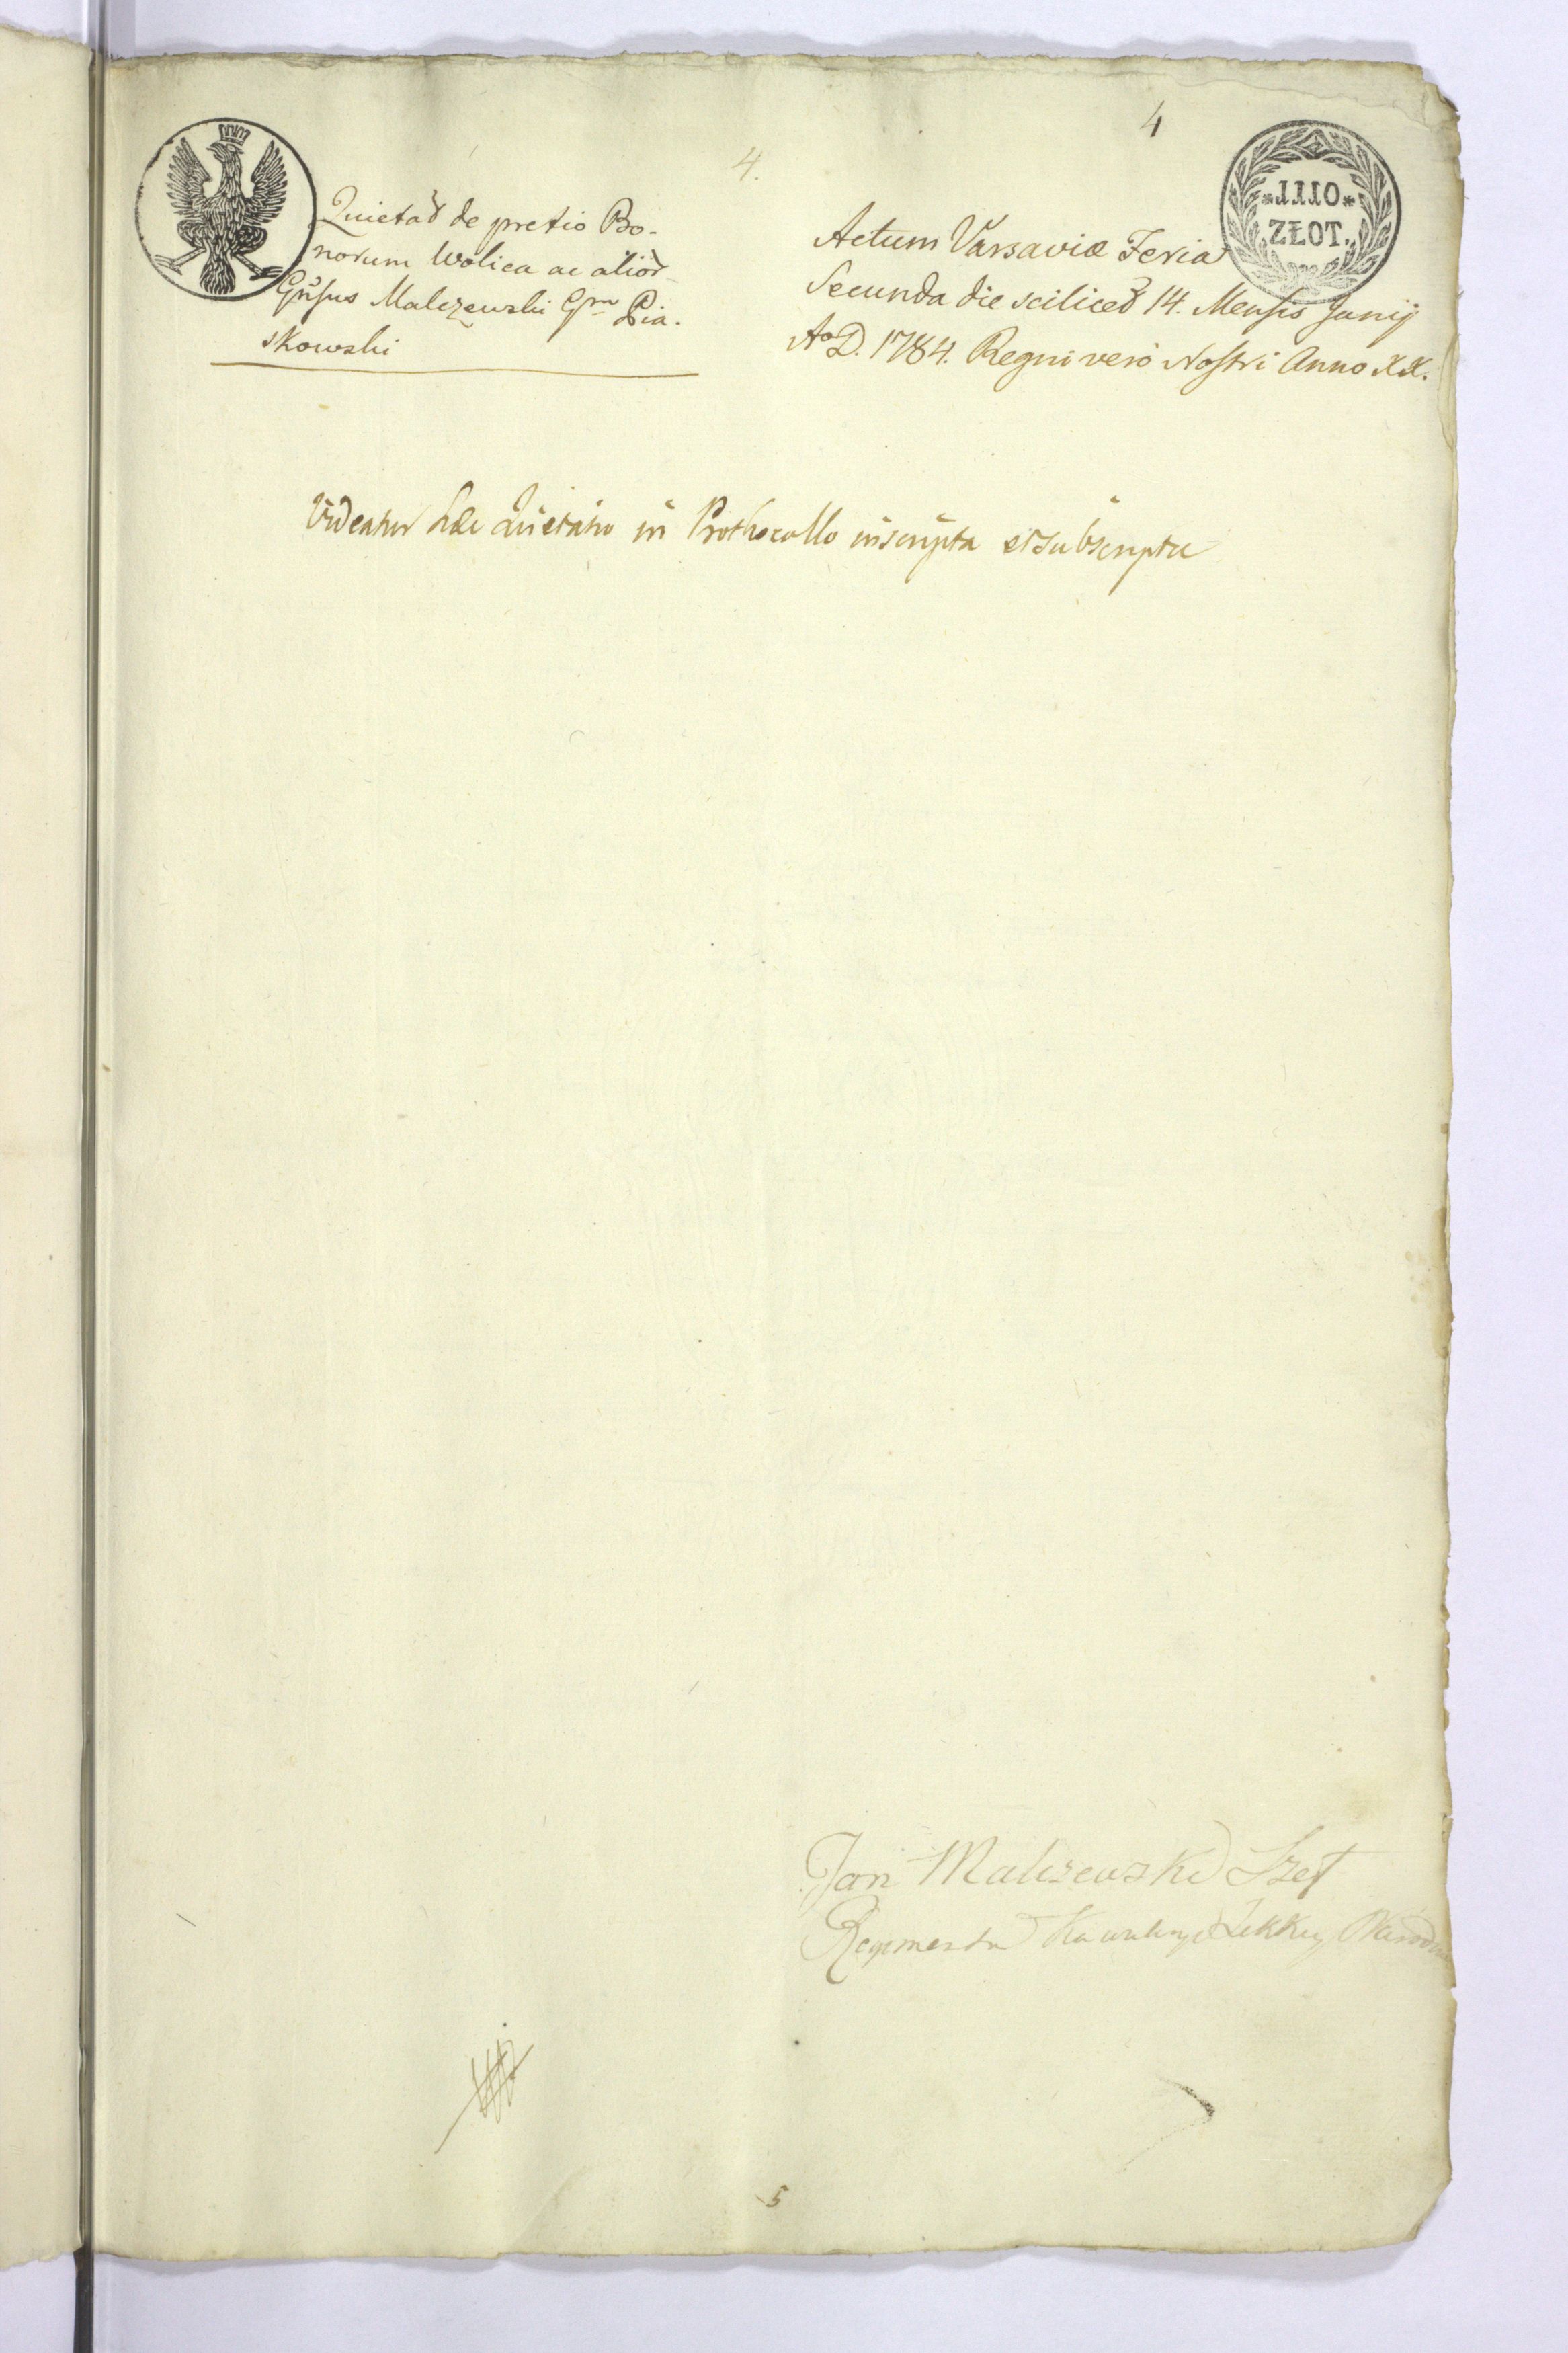 4
4.
*OTTT*
ZŁOT.
Quietat de pretio Bo-
norum Wolica ac alior
Gnsus Malczewski Gm Pia-
skowski
Actum Varsaviæ Feria
Secunda die scilicet 14. Mensis Junij
Ao D. 1784. Regni vero Nostri Anno XX.
Videatur hæc Quietatio in Prothocollo inscripta et subscripta
Jan Malczewski Szef
Regimentu Kawaleryi Lekkiey
5